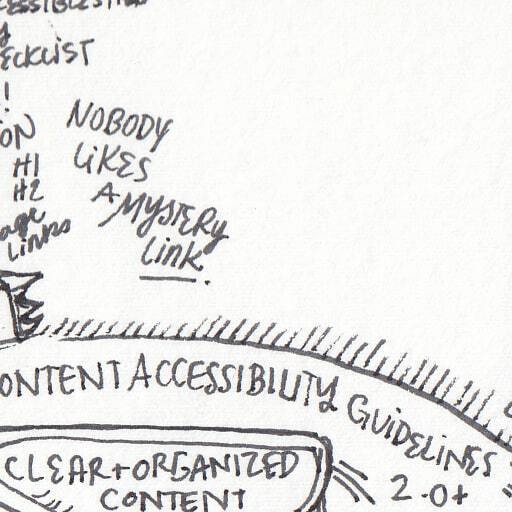 ECKLIST
!
H1
H2
Links
NOBODY
LIKES
A MYSTERY
Link.
ONTENT ACCESSIBILITY GUIDELINES
2.0+
CLEAR + ORGANIZED
CONTENT